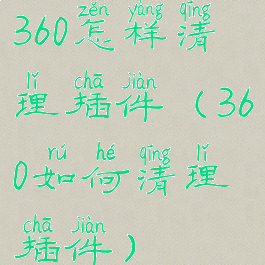 zěn yàng qīng
360怎样清
lǐ chā jiàn
理插件（36
rú hé qīng lǐ
0如何清理
chā jiàn
插件）